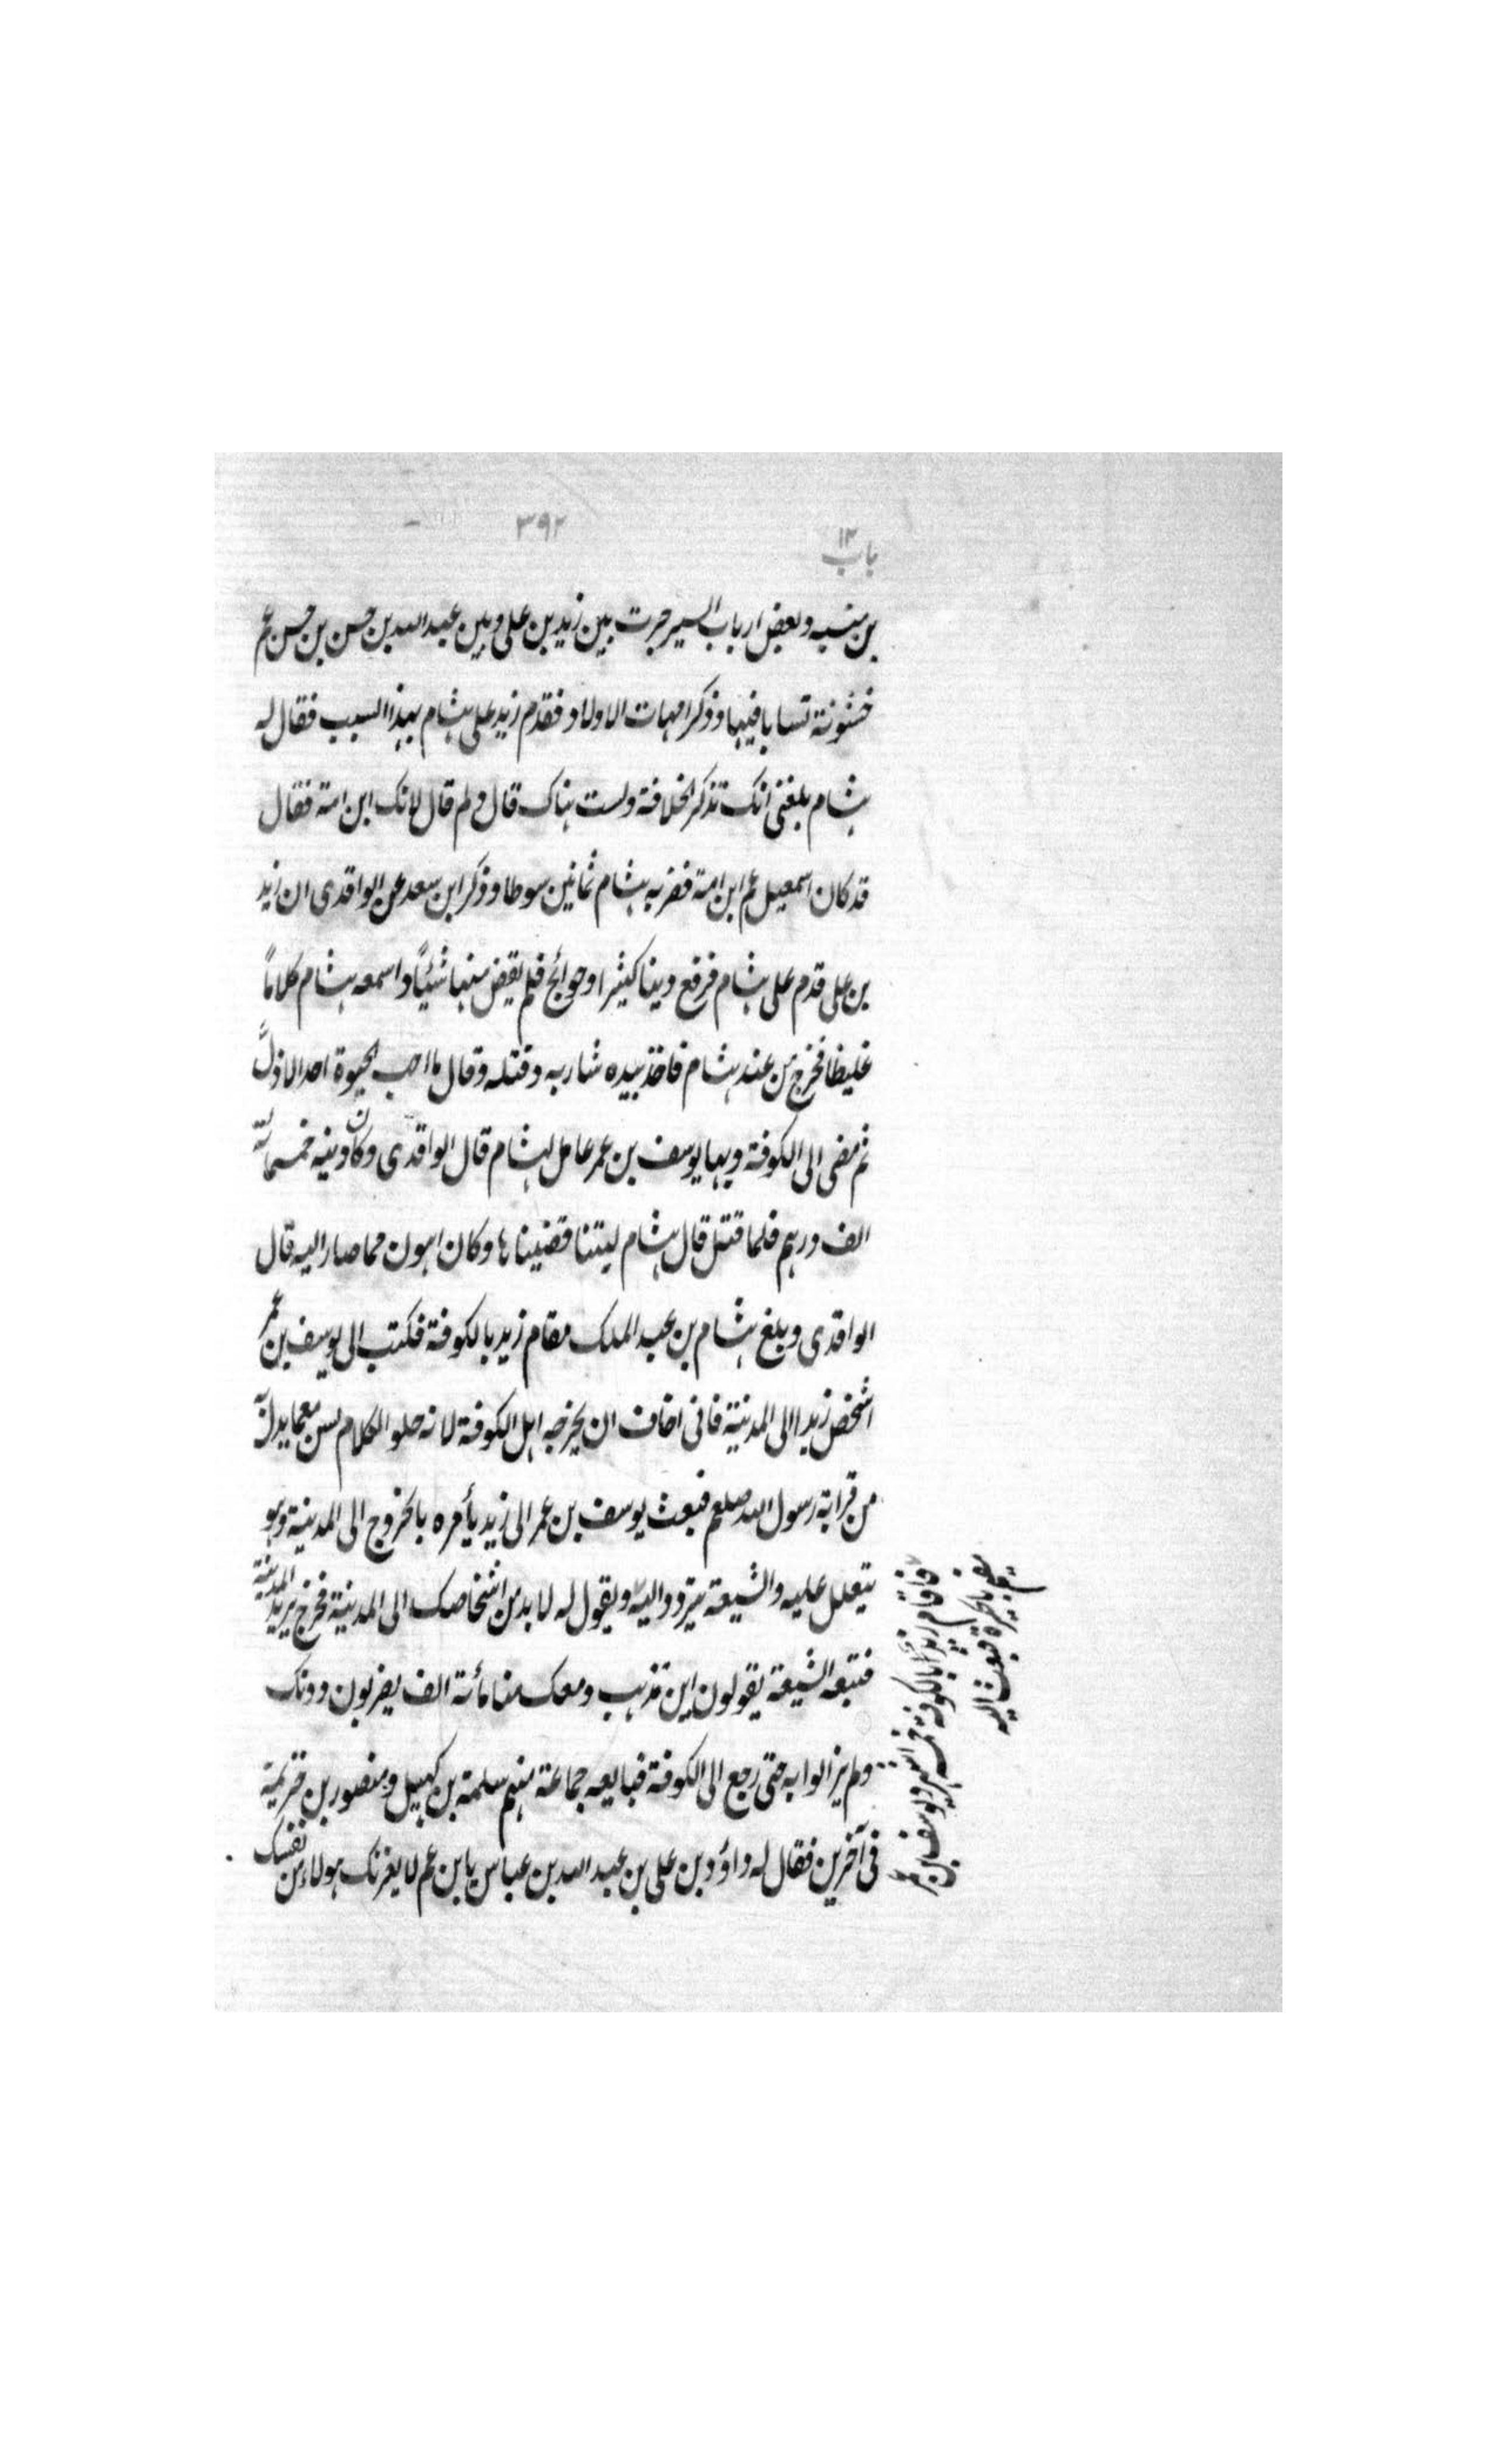 ٣٩٢
باب ١٣
بن منبه وبعض ارباب السير جرت بين زيد بن على وبين عبد الله بن حسن بن حسن عم
خشونة تسابا فيها وذكر امهات الاولاد فقدم زيد على هشام بهذا السبب فقال له
هشام بلغنى انك تذكر الخلافة ولست هناك قال ولم قال لانك ابن امة فقال
قد كان اسمعيل عم ابن امة فضربه هشام ثمانين سوطا وذكر ابن سعد عن الواقدى ان زيد
بن على قدم على هشام فرفع دينا كثيرا وحوائج فلم يقض منها شيئاً واسمعه هشام كلاماً
غليظا فخرج من عند هشام فاخذ بيده شاربه وقتله وقال ما احب الحيوة احد الا ذلّ
ثم مضى الى الكوفة وبها يوسف بن عمر عامل لهشام قال الواقدى وكان دينه خمسمائة
الف درهم فلما قتل قال هشام ليتنا قضيناها وكان اهون مما صار اليه قال
الواقدى وبلغ هشام بن عبد الملك مقام زيد بالكوفة فكتب الى يوسف بن عمر
اشخص زيدا الى المدينة فانى اخاف ان يخرجه اهل الكوفة لانه حلو الكلام لسن مع ما يدل به
من قرابة رسول الله صلعم فبعث يوسف بن عمر الى زيد يأمره بالخروج الى المدينة وهو
يتعلل عليه والشيعة تتردد اليه ويقول له لا بد من اشخاصك الى المدينة فخرج يريد المدينة
فتبعه الشيعة يقولون اين تذهب ومعك منا مأئة الف يضربون دونك
ولم يزالوا به حتى رجع الى الكوفة فبايعه جماعة منهم سلمة بن كهيل ومنصور بن خزيمة
فى آخرين فقال له داؤد بن على بن عبد الله بن عباس يا بن عم لا يغرنك هولاء من نفسك
فاقام زيد بالكوفة خمسة اشهر ويوسف بن عمر
بالحيرة فبعث اليه